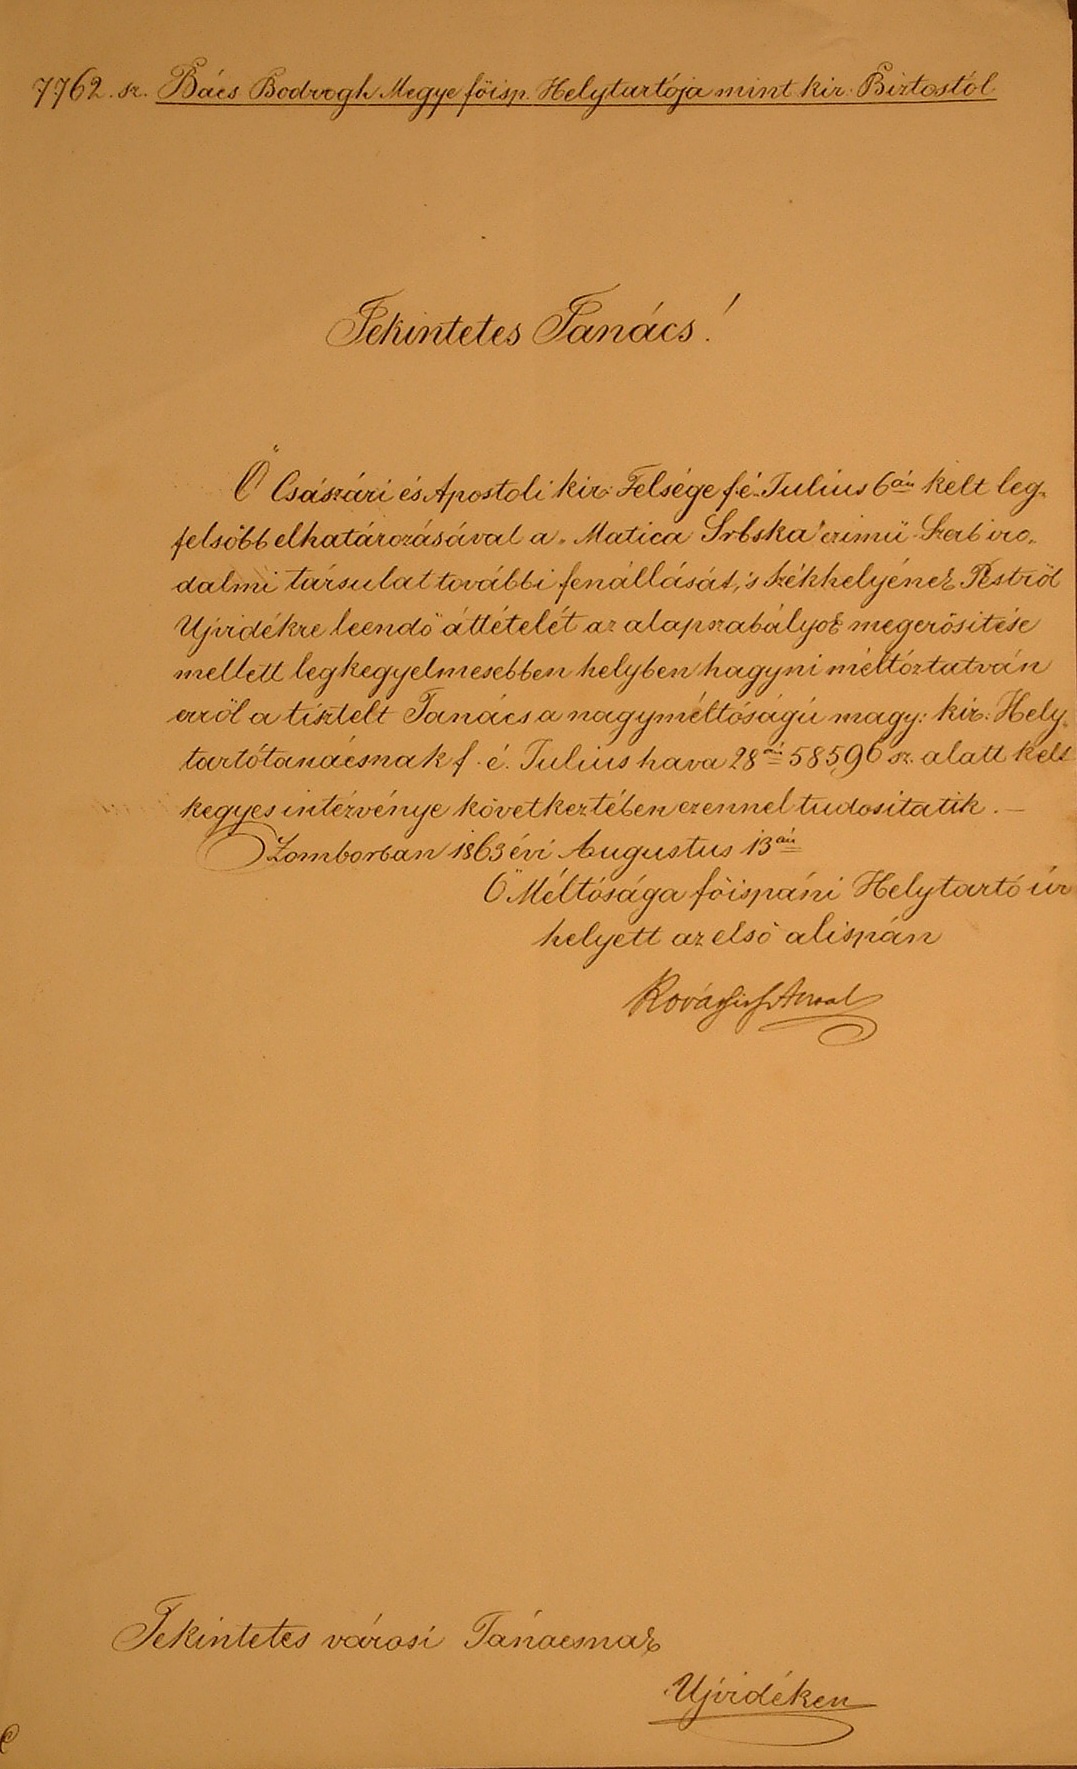 7762. sz. Bács Bodrogh Megye föisp. Helytartója mint kir. Biztostól
Tekintetes Tanács!
Ő Császári és Apostoli kir: Felsége f. é. Julius 6án kelt leg-
felsöbb elhatározásával a „Matica Srbska" czimü Szerb iro-
dalmi társulat további fenállását, 's székhelyének Peströl
Ujvidékre leendö áttételét az alapszabályok megerösitése
mellett legkegyelmesebben helyben hagyni méltóztatván
erröl a tisztelt Tanács a nagyméltóságú magy: kir: Hely-
tartótanácsnak f. é. Julius hava 28án 58596 sz. alatt kelt
kegyes intézvénye következtében ezennel tudositatik. —
Zomborban 1863 évi Augustus 13án
Ö Méltósága föispáni Helytartó úr
helyett az elsö alispán
Tekintetes városi Tanácsnak
Ujvidéken